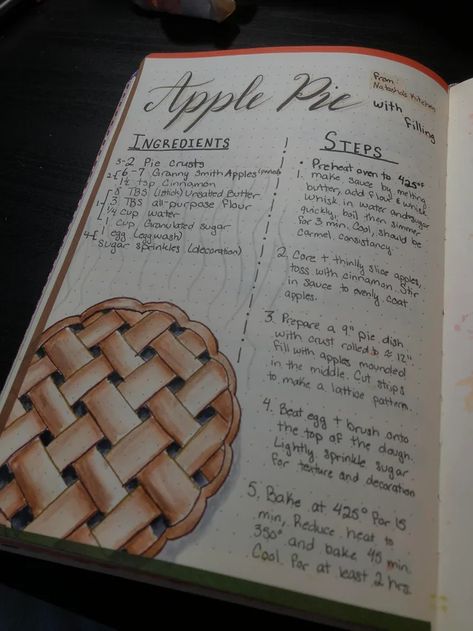 Apple Pie
From:
Natasha's Kitchen
with
filling
INGREDIENTS
3-2 Pie crusts
2-{6-7 Granny Smith Apples (peeled)
1½ tsp Cinnamon
8 TBS (1 stick) Unsalted Butter
3 TBS all-purpose flour
1-{¼ cup water
1 cup Granulated sugar
4-{1 egg (egg wash)
Sugar sprinkles (decoration)
STEPS
• Preheat oven to 425°
1. make sauce by melting
butter, add flour & whisk.
Whisk in water and sugar
quickly, boil then simmer
for 3 min. Cool, should be
carmel consistancy.
2. Core + thinly slice apples,
toss with cinnamon. Stir
in sauce to evenly coat
apples.
3. Prepare a 9" pie dish
with crust rolled to ≈ 12"
fill with apples mounded
in the middle. Cut strips
to make a lattice pattern.
4. Beat egg + brush onto
the top of the dough.
Lightly sprinkle sugar
for texture and decoration
5. Bake at 425° for 15
min, Reduce heat to
350° and bake 45 min.
Cool for at least 2 hrs.